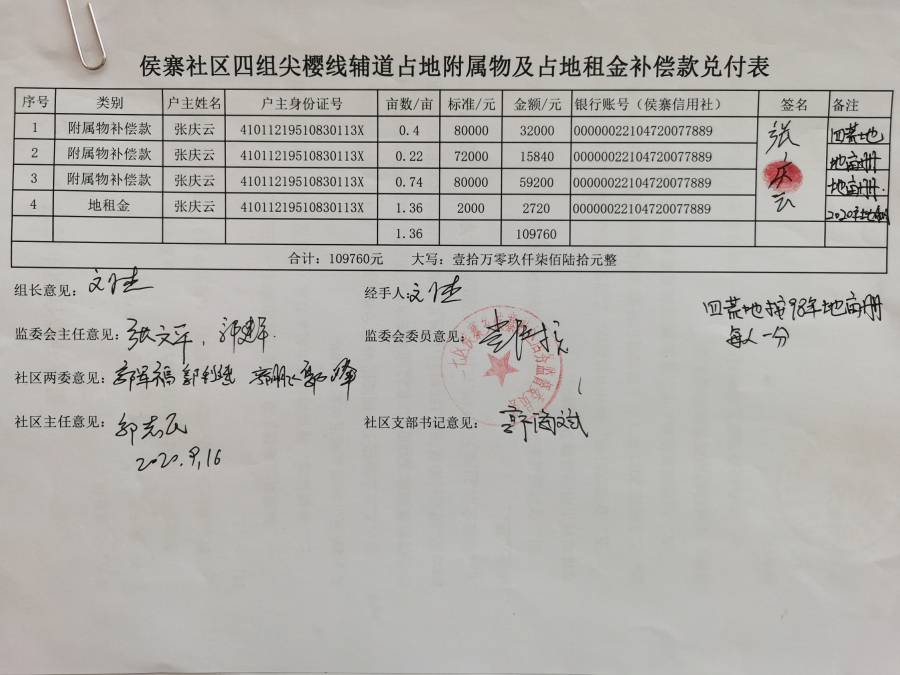 侯寨社区四组尖樱线辅道占地附属物及占地租金补偿款兑付表
序号 类别 户主姓名 户主身份证号 亩数/亩 标准/元 金额/元 银行账号（侯寨信用社） 签名 备注
1 附属物补偿款 张庆云 41011219510830113X 0.4 80000 32000 00000022104720077889 张庆云 四荒地
2 附属物补偿款 张庆云 41011219510830113X 0.22 72000 15840 00000022104720077889 地亩册
3 附属物补偿款 张庆云 41011219510830113X 0.74 80000 59200 00000022104720077889 地亩册.
4 地租金 张庆云 41011219510830113X 1.36 2000 2720 00000022104720077889 2020年地租
1.36 109760
合计：109760元 大写：壹拾万零玖仟柒佰陆拾元整
组长意见： 经手人：
四荒地按98年地亩册
每人一分
监委会主任意见：张文平， 监委会委员意见：
社区两委意见：
社区主任意见：郭志民 社区支部书记意见：
2020.9.16